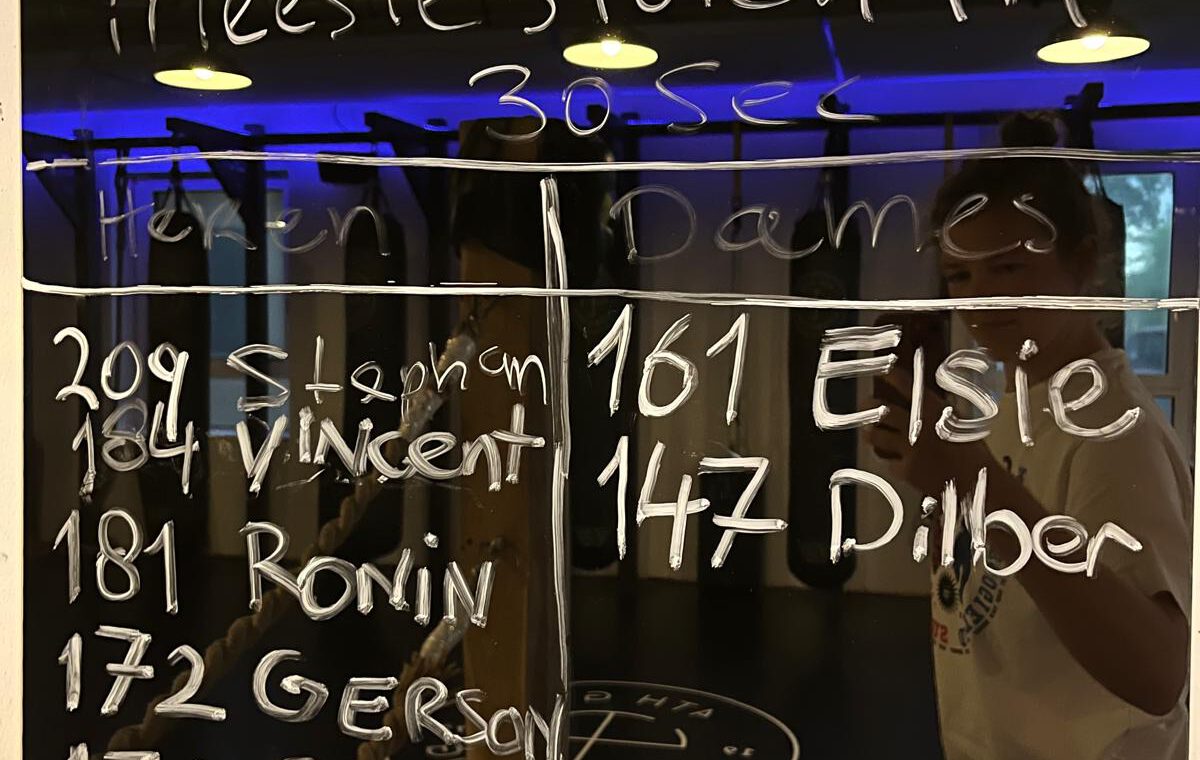 meeste stoten in
30 Sec
Heren Dames
209 Stephan
184 Vincent
181 RONiN
172 GERSON
161 Elsie
147 Dilber